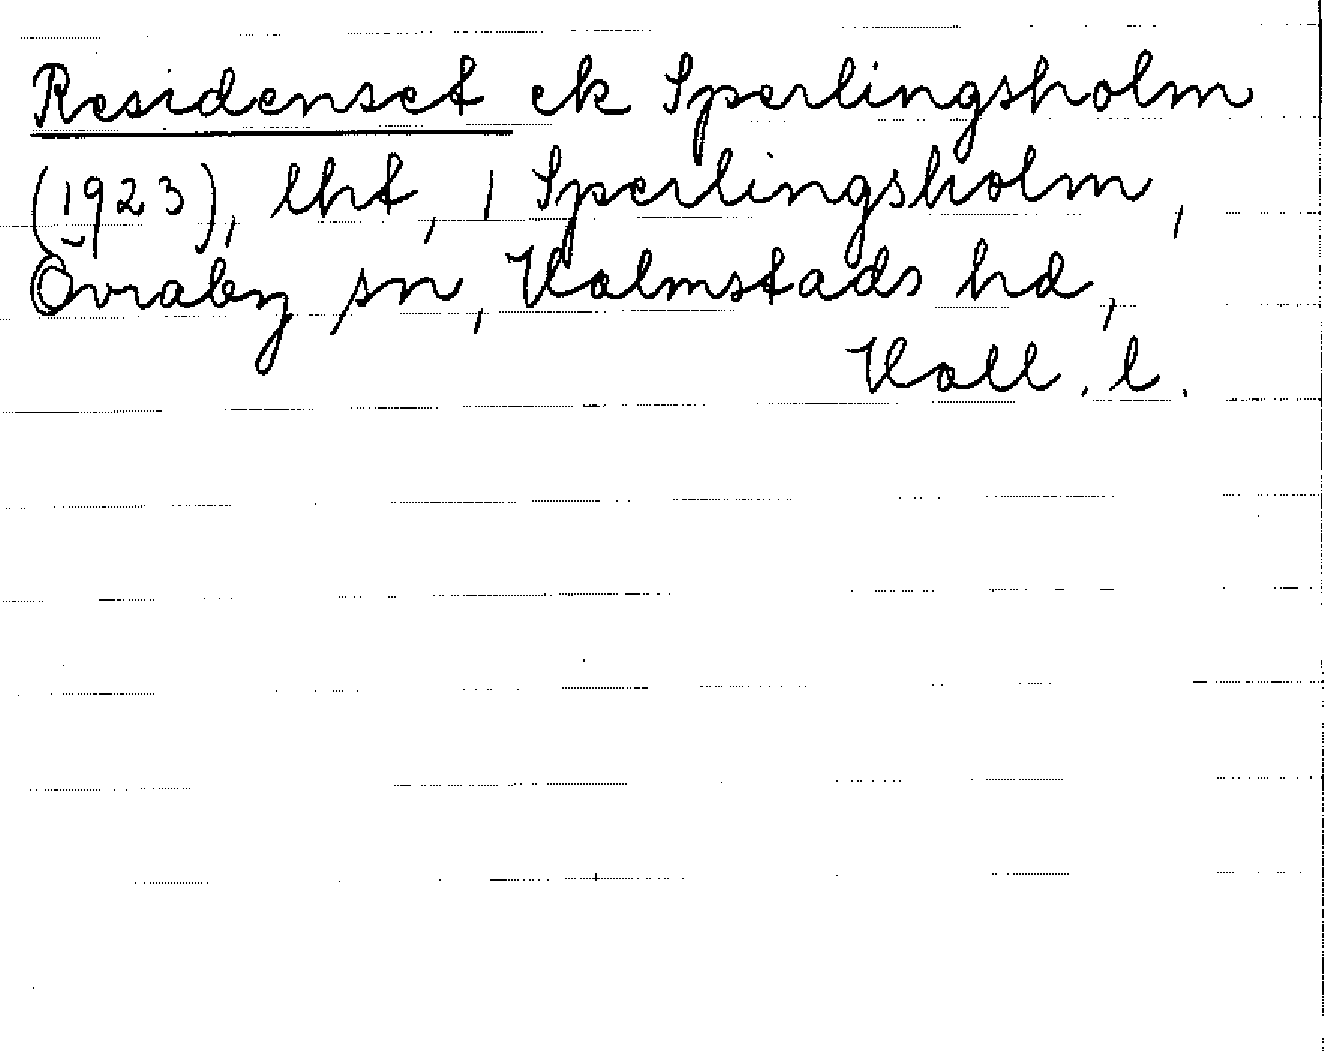 Residenset ek Sperlingsholm
(1923), lht, 1 Sperlingsholm,
Övraby sn, Halmstads hd,
Hall. l.